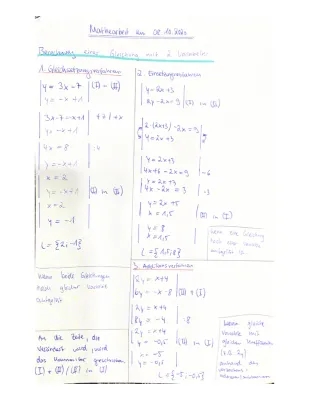 Mathearbeit am 08.10.2020
Berechnung einer Gleichung mit 2 Variablen
1. Gleichsetzungsverfahren
y = 3x - 7 (I) = (II)
y = -x + 1
3x - 7 = -x + 1 | +7 / +x
y = -x + 1
4x = 8 | :4
y = -x + 1
x = 2
y = -x + 1 (I) in (II)
x = 2
y = -1
L = {2; -1}
Wenn beide Gleichungen
nach gleicher Variable
aufgelöst
An die Seite, die
verändert wird, wird
das
(I) + (II) / (II) in (I)
2. Einsetzungsverfahren
y = 2x + 3
2y - 2x = 9 (I) in (II)
2 · (2x + 3) - 2x = 9
y = 2x + 3
4x + 6 - 2x = 9 | -6
y = 2x + 3
4x - 2x = 3 | :3
y = 2x + 5
x = 1,5 (II) in (I)
y = 8
x = 1,5
L = {1,5; 8}
Wenn eine Gleichung
nach einer Variable
aufgelöst ist
3. Additionsverfahren
2y = x + 4
6y = -x - 8 (II) + (I)
2y = x + 4
8y = -4 | :8
2y = x + 4
y = -0,5 (II) in (I)
x = -5
y = -0,5
L = {-5; -0,5}
Wenn gleiche
Variable mit
gleichem